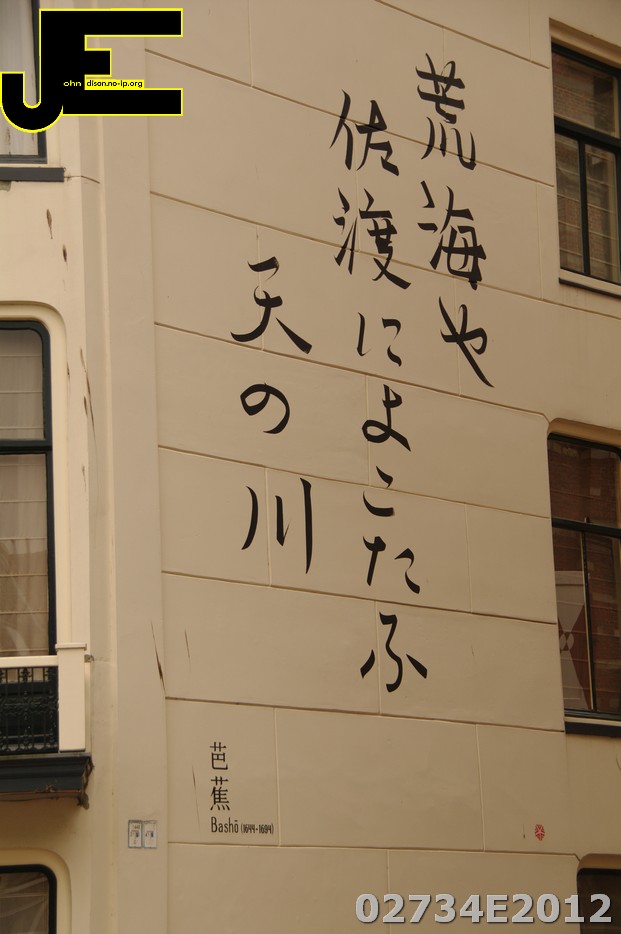 JE
ohn dison.no-ip.org
荒海や
佐渡によこたふ
天の川
芭蕉
Bashō (1644-1694)
02734E2012